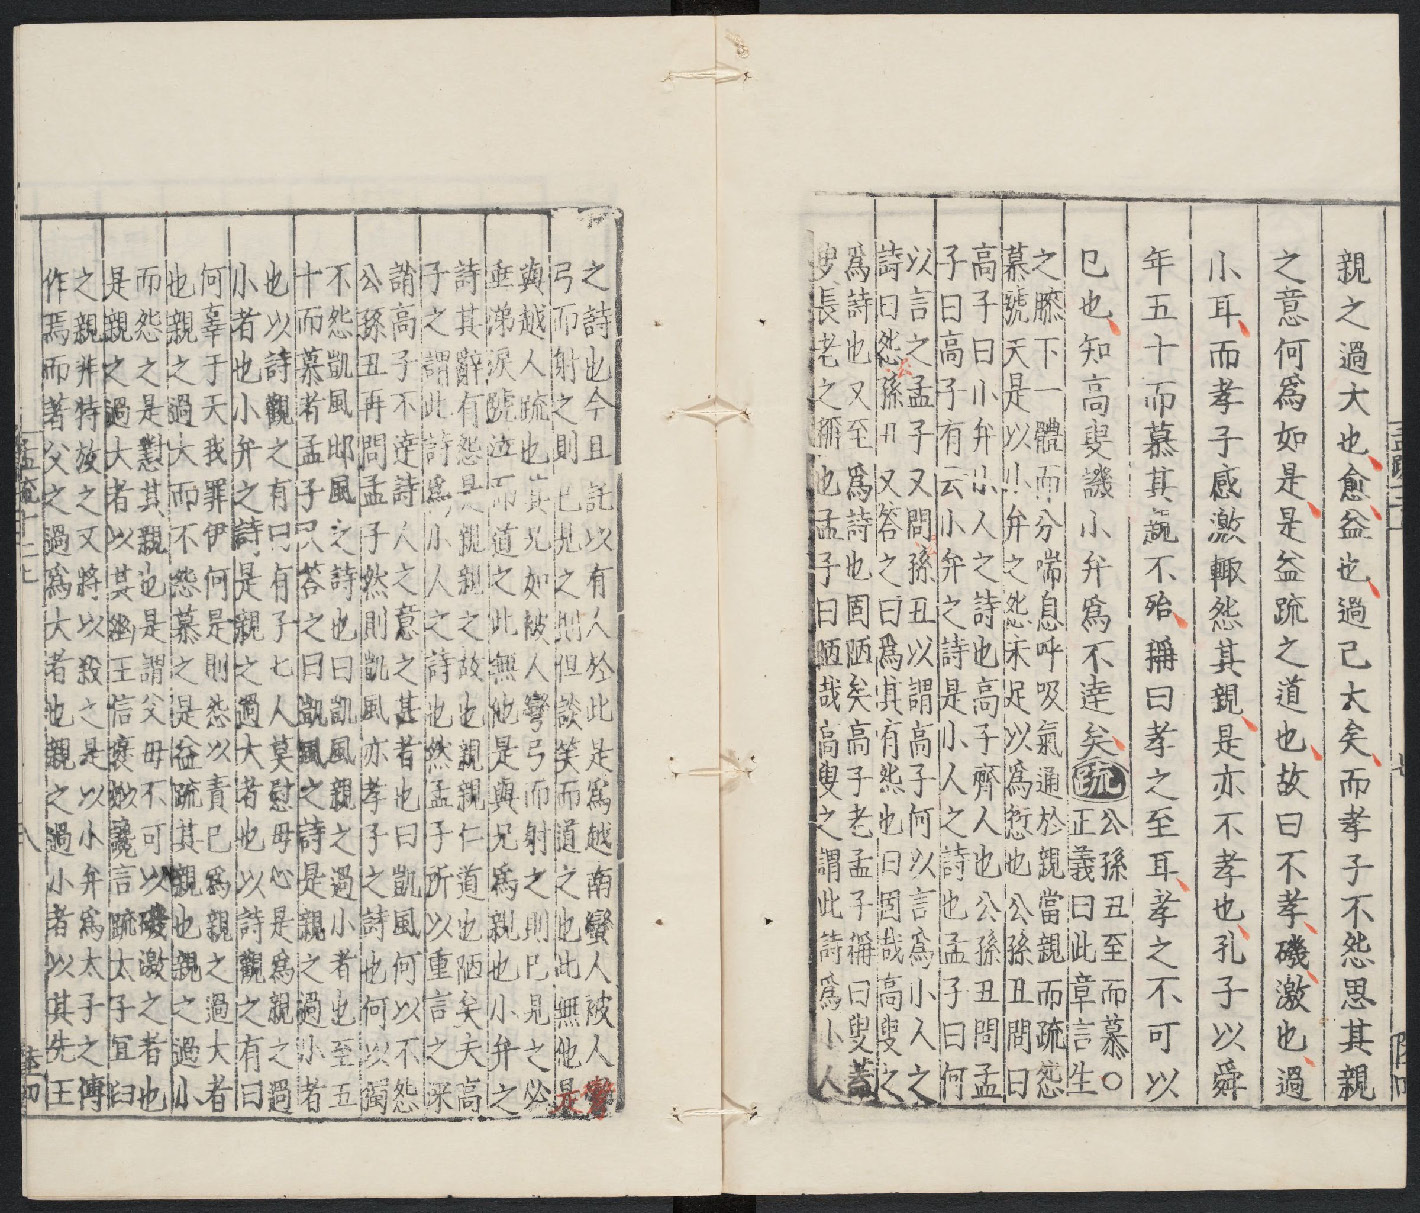 親之過大也愈益也過已大矣而孝子不怨思其親
之意何爲如是是益疏之道也故曰不孝磯激也過
小耳而孝子感激輙怨其親是亦不孝也孔子以舜
年五十而慕其親不殆稱曰孝之至耳孝之不可以
已也知高叟譏小弁爲不達矣疏
公孫丑至而慕○
正義曰此章言生
之膝下一體而分喘息呼吸氣通於親當親而疏怨
慕號天是以小弁之怨未足以爲愆也公孫丑問曰
高子曰小弁小人之詩也高子齊人也公孫丑問孟
子曰高子有云小弁之詩是小人之詩也孟子曰何
以言之孟子又問孫丑以謂高子何以言爲小人之
詩曰怨孫丑又答之曰爲其有怨也曰固哉高叟之
爲詩也又至爲詩也固陋矣高子老孟子稱曰叟蓋
叟長老之稱也孟子曰陋哉高叟之謂此詩爲小人
之詩也今且託以有人於此是爲越南蠻人被人彎
弓而射之則己見之則但談笑而道之也此無他是
與越人疏也其兄如被人彎弓而射之則己見之必
垂涕淚號泣而道之此無他是與兄爲親也小弁之
詩其辭有怨是親親之故也親親仁道也陋矣夫高
子之謂此詩爲小人之詩也然孟子所以重言之深
誚高子不達詩人之意之甚者也曰凱風何以不怨
公孫丑再問孟子然則凱風亦孝子之詩也何以獨
不怨凱風邶風之詩也曰凱風親之過小者也至五
十而慕者孟子又答之曰凱風之詩是親之過小者
也以詩觀之有曰有子七人莫慰母心是爲親之過
小者也小弁之詩是親之過大者也以詩觀之有曰
何辜于天我罪伊何是則怨以責已爲親之過大者
也親之過大而不怨慕之是益疏其親也親之過小
而怨之是慰其親也是謂父母不可以磯激之者也
是親之過大者以其幽王信褒姒讒言疏太子宜臼
之親非特放之又將以殺之是以小弁爲太子之傅
作焉而著父之過爲大者也親之過小者以其先王
孟疏十二上
八